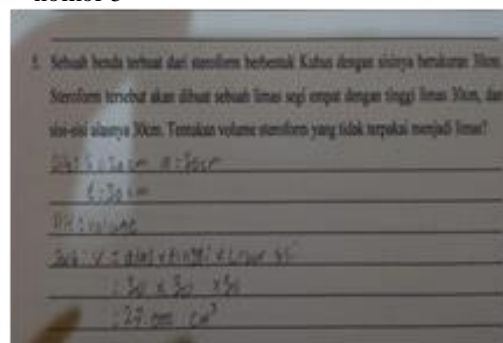 nomor 5
5. Sebuah benda terbuat dari steroform berbentuk Kubus dengan sisinya berukuran 30cm.
Steroform tersebut akan dibuat sebuah limas segi empat dengan tinggi limas 30cm, dan
sisi-sisi alasnya 30cm. Tentukan volume steroform yang tidak terpakai menjadi limas?
Dik : S : 30 cm a : 30 cm
t : 30 cm
Dit : volume
Jwb : V = alas x tinggi x
: 30 x 30 x 30
: 27.000 cm³